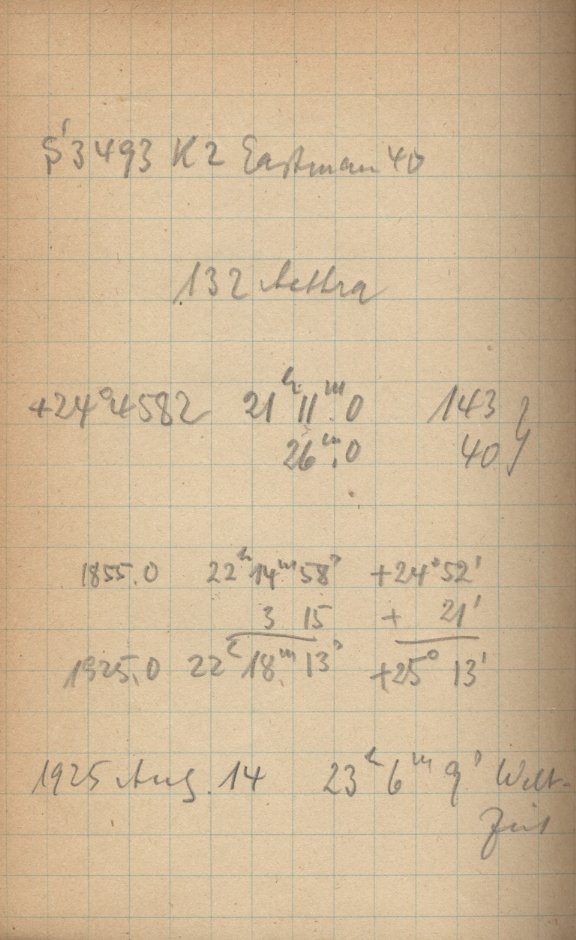 S 3493 K2 Eastman 40
132 Aethra
+24°4582 21ʰ 11ᵐ.0 143 }
26ᵐ.0 40
1855.0 22ʰ 14ᵐ 58ˢ +24° 52'
3 15 + 21'
1925.0 22ʰ 18ᵐ 13ˢ +25° 13'
1925 Aug. 14 23ʰ 6ᵐ 9ˢ Welt-
Zeit